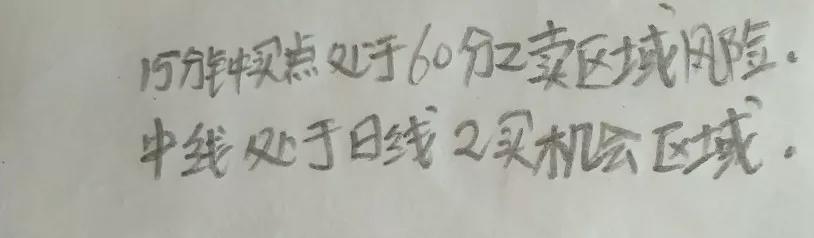 15分钟买点处于60分2卖区域风险.
中线处于日线2买机会区域.